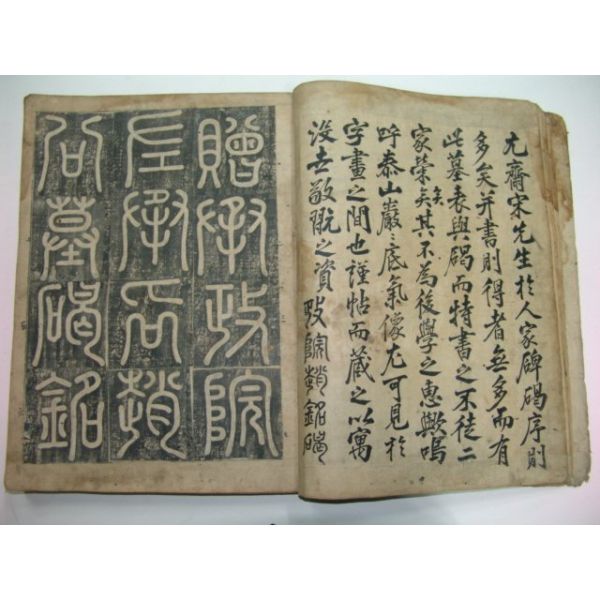 尤齋宋先生於人家碑碣序則
多矣并書則得者無多而有
此墓表與碣而特書之不徒二
家榮矣其不為後學之惠歟嗚
呼泰山巖〻底氣像尤可見於
字畫之間也謹帖而藏之以寓
沒世敬翫之資 政院趙銘碣
贈承政院
左承旨趙
公墓碣銘